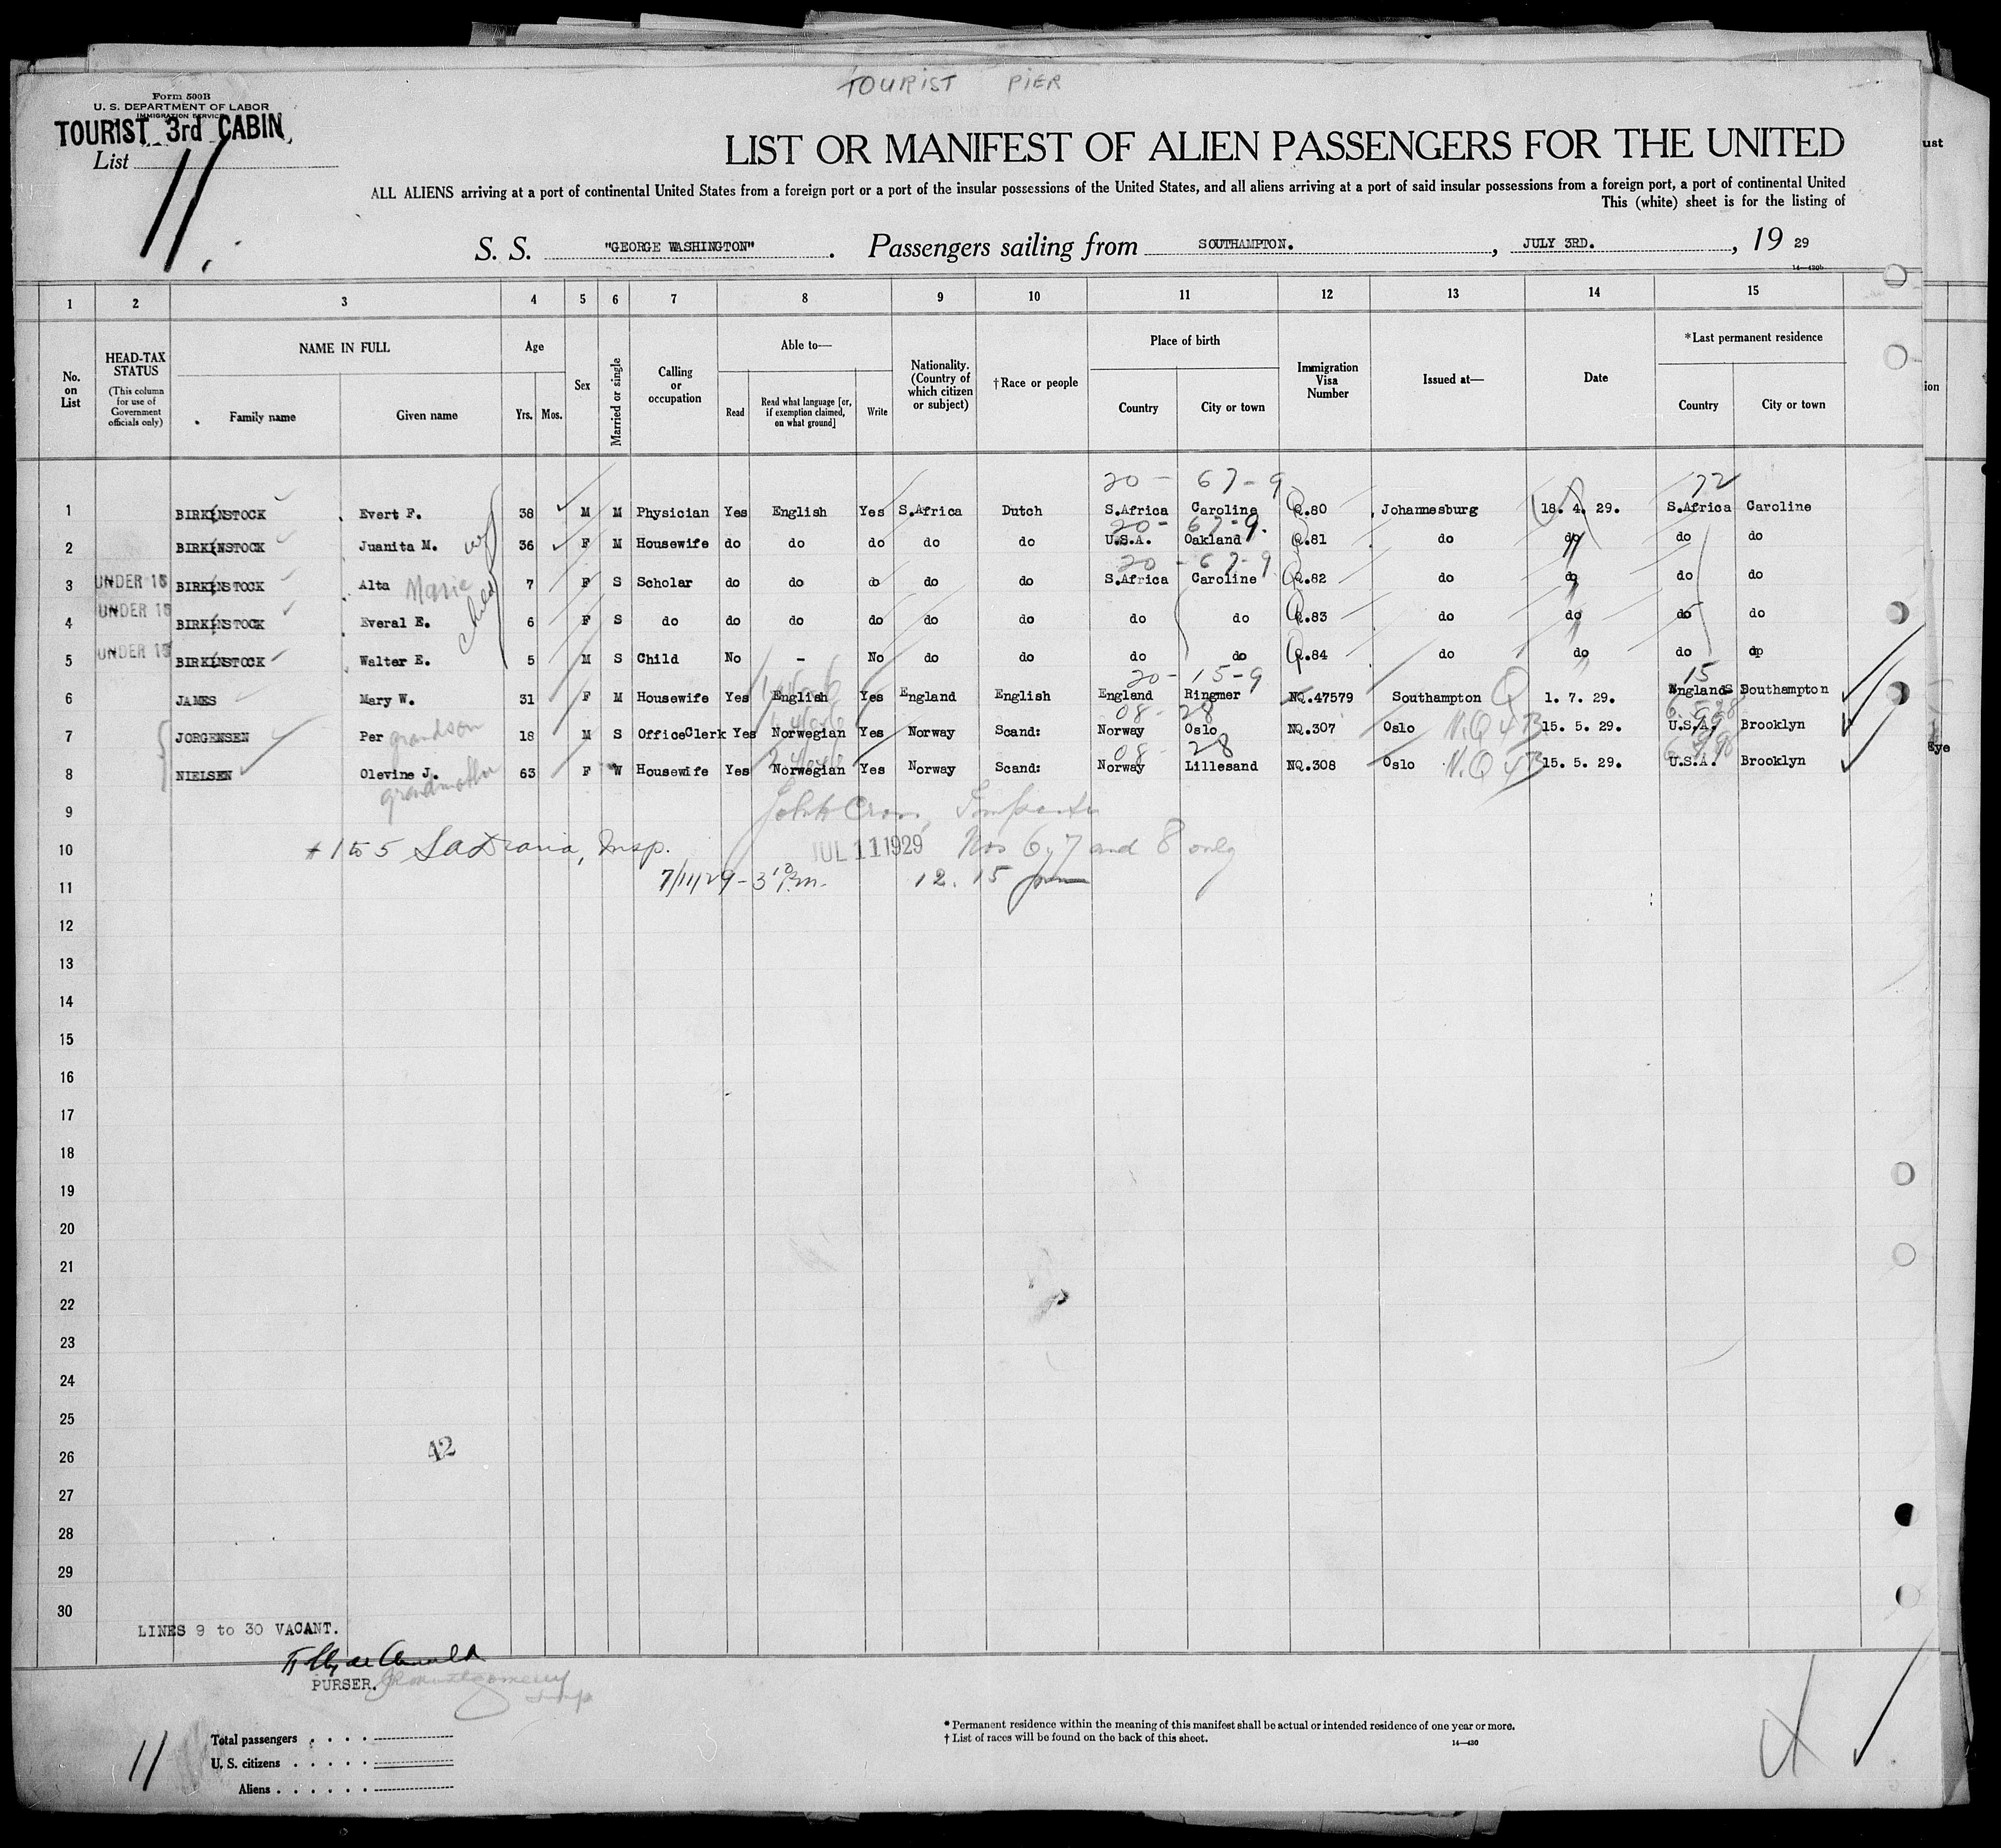 TOURIST PIER
Form 500B
U. S. DEPARTMENT OF LABOR
IMMIGRATION SERVICE
TOURIST 3rd CABIN
List 11.
LIST OR MANIFEST OF ALIEN PASSENGERS FOR THE UNITED
ALL ALIENS arriving at a port of continental United States from a foreign port or a port of the insular possessions of the United States, and all aliens arriving at a port of said insular possessions from a foreign port, a port of continental United
This (white) sheet is for the listing of
S. S. "GEORGE WASHINGTON". Passengers sailing from SOUTHAMPTON. , JULY 3RD. , 19 29
14—430b
1 2 3 4 5 6 7 8 9 10 11 12 13 14 15
No. on List
HEAD-TAX STATUS (This column for use of Government officials only)
NAME IN FULL
Family name
Given name
Age
Yrs. Mos.
Sex
Married or single
Calling or occupation
Able to—
Read
Read what language [or, if exemption claimed, on what ground]
Write
Nationality. (Country of which citizen or subject)
†Race or people
Place of birth
Country
City or town
Immigration Visa Number
Issued at—
Date
*Last permanent residence
Country
City or town
20 - 67-9 72
1 BIRKENSTOCK Evert F. 38 M M Physician Yes English Yes S.Africa Dutch S.Africa Caroline Q.80 Johannesburg 18. 4. 29. S.Africa Caroline
20- 67-9.
2 BIRKENSTOCK Juanita M. wf 36 F M Housewife do do do do do U.S.A. Oakland Q.81 do do do do
20 - 67-9
3 UNDER 16 BIRKENSTOCK Alta Marie 7 F S Scholar do do do do do S.Africa Caroline Q.82 do do do do
4 UNDER 16 BIRKENSTOCK Everal E. 6 F S do do do do do do do do Q.83 do do do do
5 UNDER 16 BIRKENSTOCK Walter E. 5 M S Child No - No do do do do Q.84 do do do do
20- 15-9 15
6 JAMES Mary W. 31 F M Housewife Yes English Yes England English England Ringmer NQ.47579 Southampton Q 1. 7. 29. England Southampton
08- 28
7 JORGENSEN Per grandson 18 M S OfficeClerk Yes Norwegian Yes Norway Scand: Norway Oslo NQ.307 Oslo N.Q 4B 15. 5. 29. U.S.A. Brooklyn
08- 28
8 NIELSEN Olevine J. grandmother 63 F W Housewife Yes Norwegian Yes Norway Scand: Norway Lillesand NQ.308 Oslo N.Q 4B 15. 5. 29. U.S.A. Brooklyn
9
10 # 1 to 5 Insp. JUL 11 1929 Nos 6, 7 and 8 only
11 7/11/29 - 3 P.m. 12. 15 pm
12
13
14
15
16
17
18
19
20
21
22
23
24
25
42
26
27
28
29
30
LINES 9 to 30 VACANT.
PURSER.
Total passengers
U. S. citizens
Aliens
11
* Permanent residence within the meaning of this manifest shall be actual or intended residence of one year or more.
† List of races will be found on the back of this sheet.
14—430
ust
ion
Eye